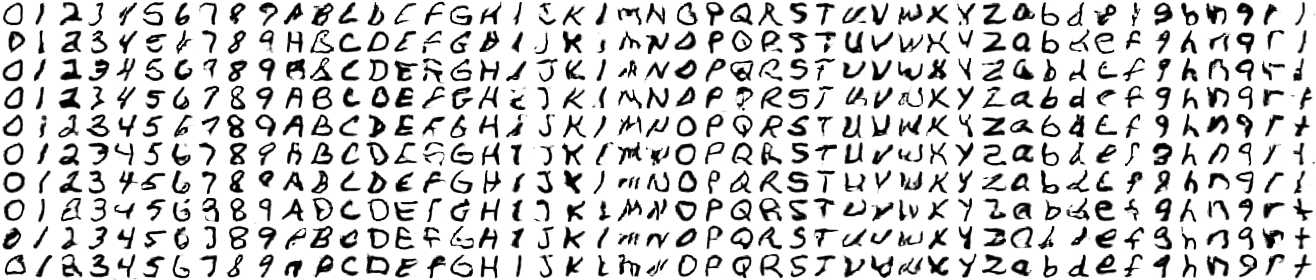 0 1 2 3 4 5 6 7 8 9 A B C D E F G H I J K L M N O P Q R S T U V W X Y Z a b d e f g h n q r t
0 1 2 3 4 5 6 7 8 9 A B C D E F G H I J K L M N O P Q R S T U V W X Y Z a b d e f g h n q r t
0 1 2 3 4 5 6 7 8 9 A B C D E F G H I J K L M N O P Q R S T U V W X Y Z a b d e f g h n q r t
0 1 2 3 4 5 6 7 8 9 A B C D E F G H I J K L M N O P Q R S T U V W X Y Z a b d e f g h n q r t
0 1 2 3 4 5 6 7 8 9 A B C D E F G H I J K L M N O P Q R S T U V W X Y Z a b d e f g h n q r t
0 1 2 3 4 5 6 7 8 9 A B C D E F G H I J K L M N O P Q R S T U V W X Y Z a b d e f g h n q r t
0 1 2 3 4 5 6 7 8 9 A B C D E F G H I J K L M N O P Q R S T U V W X Y Z a b d e f g h n q r t
0 1 2 3 4 5 6 3 8 9 A B C D E F G H I J K L M N O P Q R S T U V W X Y Z a b d e f g h n q r t
0 1 2 3 4 5 6 7 8 9 A B C D E F G H I J K L M N O P Q R S T U V W X Y Z a b d e f g h n q r t
0 1 2 3 4 5 6 7 8 9 A B C D E F G H I J K L M N O P Q R S T U V W X Y Z a b d e f g h n q r t